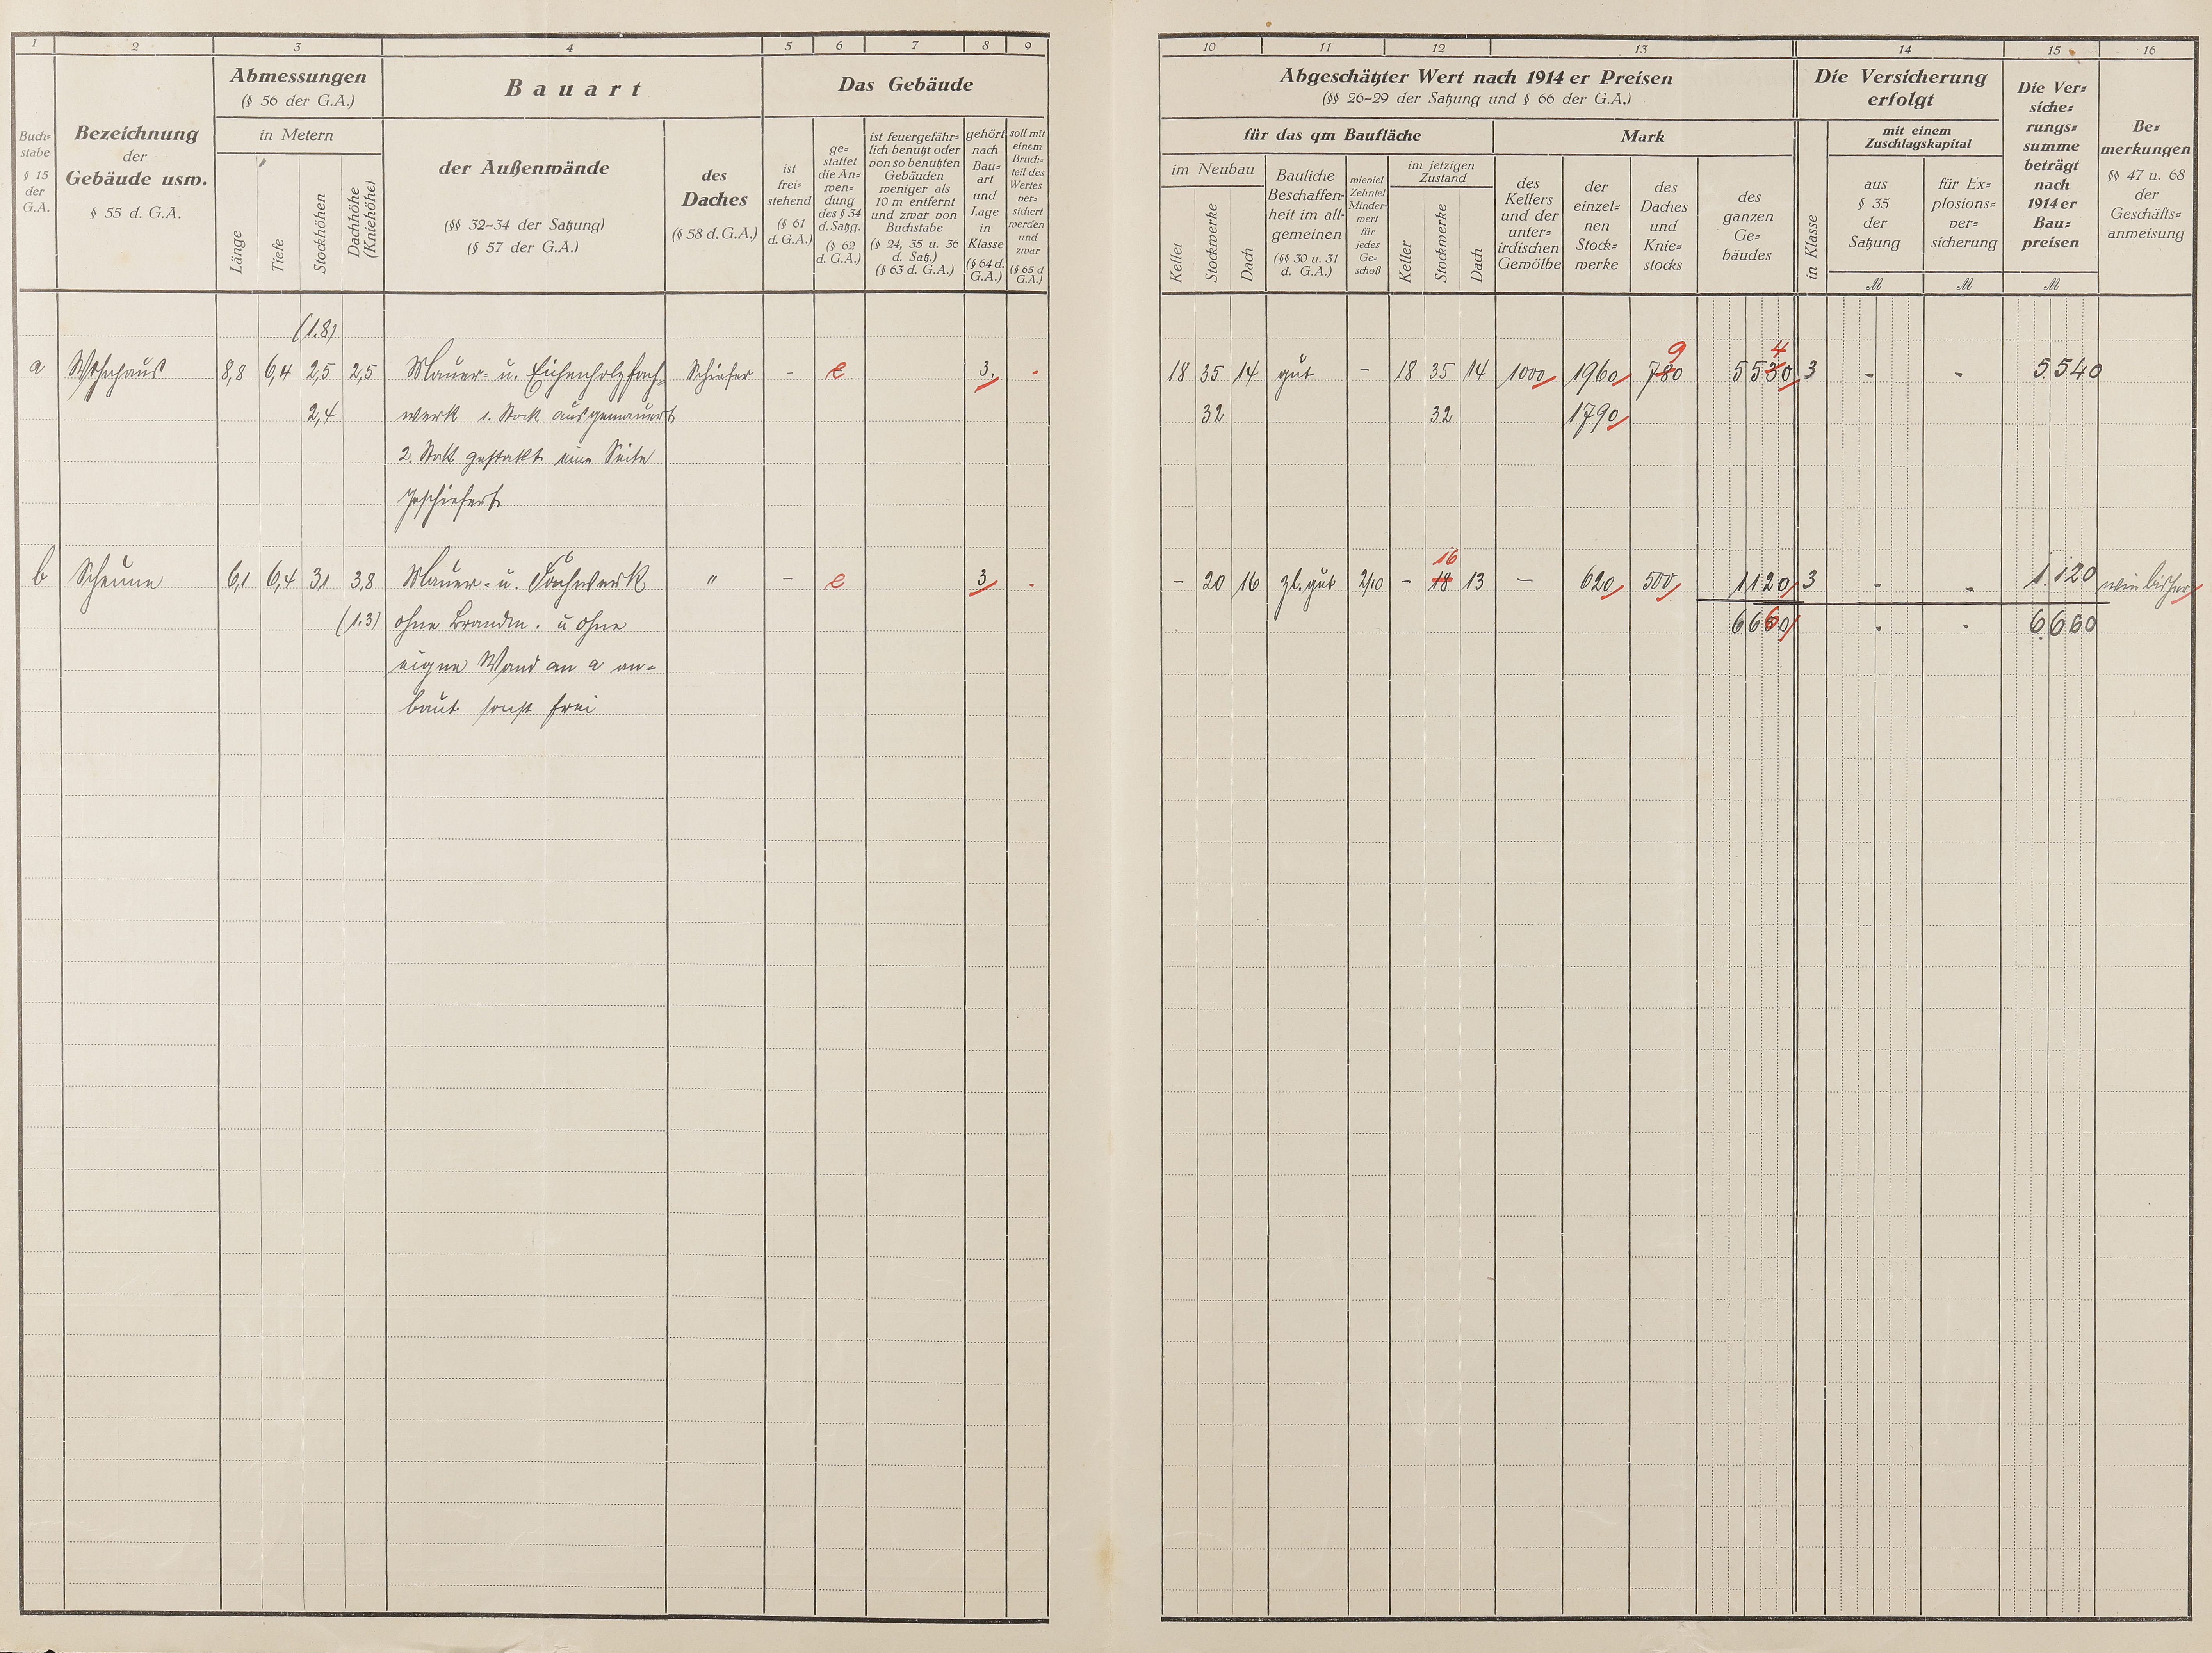 1 2 3 4 5 6 7 8 9
Buch=
stabe
§ 15
der
G.A.
Bezeichnung
der
Gebäude usw.
§ 55 d. G.A.
Abmessungen
(§ 56 der G.A.)
in Metern
Länge
Tiefe
Stockhöhen
Dachhöhe
(Kniehöhe)
Bauart
der Außenwände
(§§ 32–34 der Satzung)
(§ 57 der G.A.)
des
Daches
(§ 58 d. G.A.)
Das Gebäude
ist
frei=
stehend
(§ 61
d. G.A.)
ge=
stattet
die An=
wen=
dung
des § 34
d. Satzg.
(§ 62
d. G.A.)
ist feuergefähr=
lich benutzt oder
von so benutzten
Gebäuden
weniger als
10 m entfernt
und zwar von
Buchstabe
(§ 24, 35 u. 36
d. Satz.)
(§ 63 d. G.A.)
gehört
nach
Bau=
art
und
Lage
in
Klasse
(§ 64 d.
G.A.)
soll mit
einem
Bruch=
teil des
Wertes
ver=
sichert
werden
und
zwar
(§ 65 d
G.A.)
(1.8)
a Wohnhaus 8,8 6,4 2,5 2,5 Mauer- u. Eichenholzfach= Schiefer – e 3. -
2,4 werk 1. Stock ausgemauert
2. Stock gestakt eine Seite
geschiefert
b Scheune 6,1 6,4 3,1 3,8 Mauer- u. Fachwerk " – e 3 -
(1.3) ohne Brandm. u ohne
eigne Wand an a an=
baut sonst frei
10 11 12 13 14 15 16
Abgeschätzter Wert nach 1914 er Preisen
(§§ 26–29 der Satzung und § 66 der G.A.)
für das qm Baufläche
Mark
im Neubau
Keller
Stockwerke
Dach
Bauliche
Beschaffen=
heit im all=
gemeinen
(§§ 30 u. 31
d. G.A.)
wieviel
Zehntel
Minder=
wert
für
jedes
Ge=
schoß
im jetzigen
Zustand
Keller
Stockwerke
Dach
des
Kellers
und der
unter=
irdischen
Gewölbe
der
einzel=
nen
Stock=
werke
des
Daches
und
Knie=
stocks
des
ganzen
Ge=
bäudes
Die Versicherung
erfolgt
in Klasse
mit einem
Zuschlagskapital
aus
§ 35
der
Satzung
M
für Ex=
plosions=
ver=
sicherung
M
Die Ver=
siche=
rungs=
summe
beträgt
nach
1914 er
Bau=
preisen
M
Be=
merkungen
§§ 47 u. 68
der
Geschäfts=
anweisung
9 4
18 35 14 gut – 18 35 14 1000 1960 780 5530 3 - - 5540
32 32 1790
16
– 20 16 zl. gut 2/10 – 18 13 – 620 500 1120 3 - - 1.120 wie bisher
6660 - - 6.660